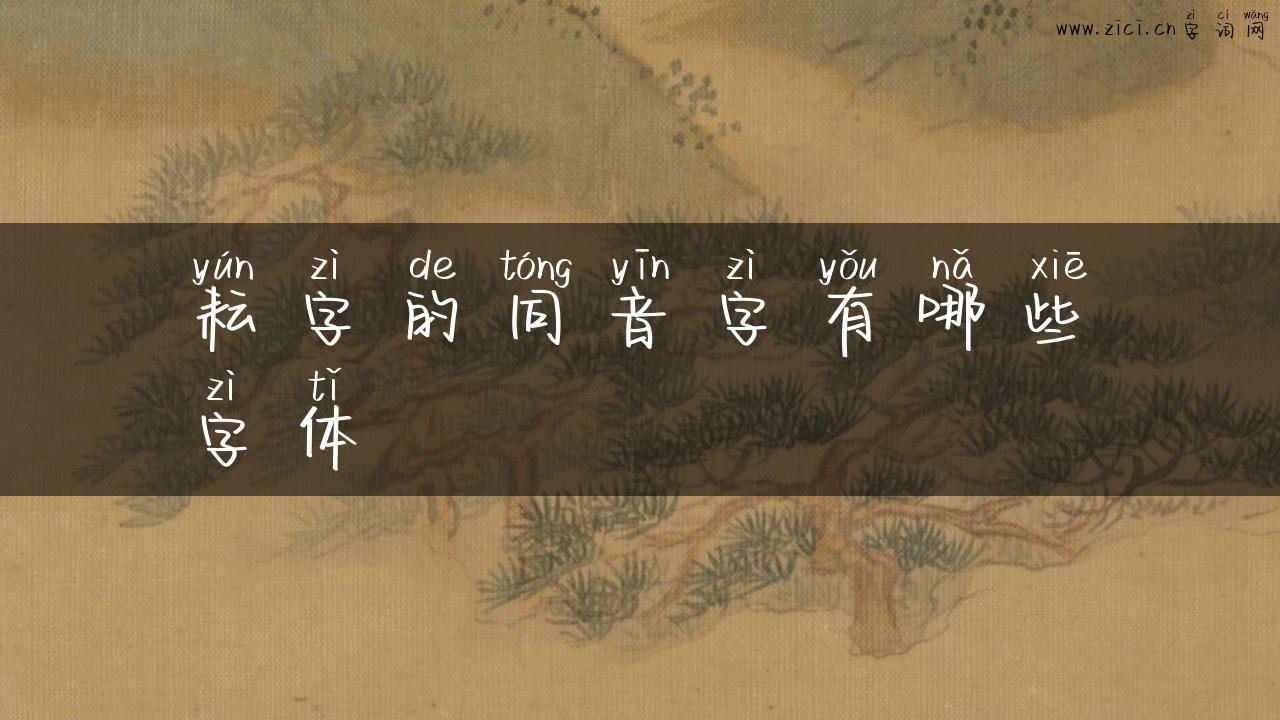 zì cí wǎng
www.zici.cn 字词网
yún zì de tóng yīn zì yǒu nǎ xiē
耘字的同音字有哪些
zì tǐ
字体